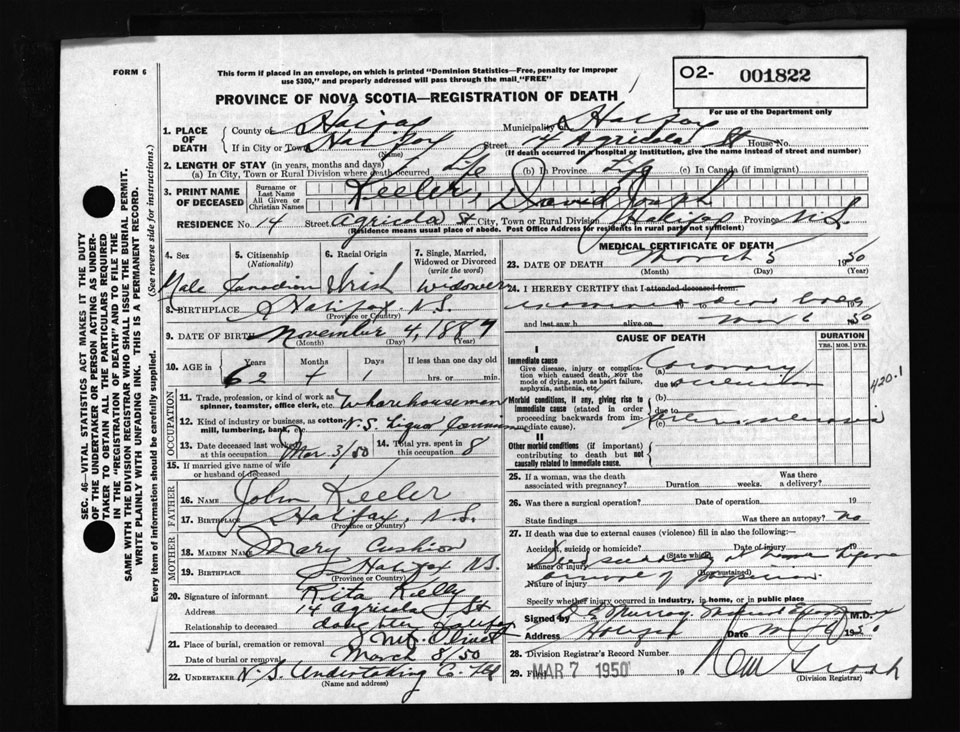 FORM 6
This form if placed in an envelope, on which is printed "Dominion Statistics—Free, penalty for improper
use $300," and properly addressed will pass through the mail "FREE"
O2- 001822
For use of the Department only
PROVINCE OF NOVA SCOTIA—REGISTRATION OF DEATH
1. PLACE OF DEATH
County of Halifax Municipality of Halifax
If in City or Town Halifax (Name) Street 14 Agricola St House No.
(If death occurred in a hospital or institution, give the name instead of street and number)
2. LENGTH OF STAY (in years, months and days)
(a) In City, Town or Rural Division where death occurred Life (b) In Province Life (c) In Canada (if immigrant)
3. PRINT NAME OF DECEASED
Surname or Last Name
All Given or Christian Names
Keeler, David Joseph
RESIDENCE No. 14 Street Agricola St City, Town or Rural Division Halifax Province N.S.
(Residence means usual place of abode. Post Office Address for residents in rural parts not sufficient)
4. Sex
Male
5. Citizenship (Nationality)
Canadian
6. Racial Origin
Irish
7. Single, Married, Widowed or Divorced (write the word)
Widower
8. BIRTHPLACE Halifax N.S.
(Province or Country)
9. DATE OF BIRTH November 4, 1887
(Month) (Day) (Year)
10. AGE in Years Months Days If less than one day old
62 4 1 hrs. or min.
OCCUPATION
11. Trade, profession, or kind of work as spinner, teamster, office clerk, etc. Wharehouseman
12. Kind of industry or business, as cotton mill, lumbering, bank, etc. N.S. Liquor
13. Date deceased last worked at this occupation Mar 3/50
14. Total yrs. spent in this occupation 8
15. If married give name of wife or husband of deceased
FATHER
16. NAME John Keeler
17. BIRTHPLACE Halifax, N.S.
(Province or Country)
MOTHER
18. MAIDEN NAME Mary Cushion
19. BIRTHPLACE Halifax N.S.
(Province or Country)
20. Signature of informant Rita Kelly
Address 14 Agricola St
Relationship to deceased daughter Halifax
21. Place of burial, cremation or removal Mt. Olivet
Date of burial or removal March 8/50
22. UNDERTAKER N.S. Undertaking Co. Ltd
(Name and address)
MEDICAL CERTIFICATE OF DEATH
23. DATE OF DEATH March 5 1950
(Month) (Day) (Year)
24. I HEREBY CERTIFY that I attended deceased from:
to dead body 19
and last saw h alive on Mar 6 1950
CAUSE OF DEATH
DURATION
YRS. MOS. DYS.
I
Immediate cause
Give disease, injury or complication which caused death, not the mode of dying, such as heart failure, asphyxia, asthenia, etc.
(a) Coronary
due to occlusion
420.1
Morbid conditions, if any, giving rise to immediate cause (stated in order proceeding backwards from immediate cause)
(b)
due to
(c)
II
Other morbid conditions (if important) contributing to death but not causally related to immediate cause.
25. If a woman, was the death associated with pregnancy? Duration weeks. Was there a delivery?
26. Was there a surgical operation? Date of operation 19
State findings Was there an autopsy? no
27. If death was due to external causes (violence) fill in also the following:—
Accident, suicide or homicide? (State which) Date of injury 19
Manner of injury Died suddenly at home before
(How sustained)
Nature of injury arrival of physician
Specify whether injury occurred in industry, in home, or in public place
Signed by Murray Medical M.D.
Address Halifax Date Mar 6 1950
28. Division Registrar's Record Number
29. Filed MAR 7 1950 19
(Division Registrar)
SEC. 46—VITAL STATISTICS ACT MAKES IT THE DUTY
OF THE UNDERTAKER OR PERSON ACTING AS UNDER-
TAKER TO OBTAIN ALL THE PARTICULARS REQUIRED
IN THE "REGISTRATION OF DEATH" AND TO FILE THE
SAME WITH THE DIVISION REGISTRAR WHO SHALL ISSUE THE BURIAL PERMIT.
WRITE PLAINLY WITH UNFADING INK. THIS IS A PERMANENT RECORD.
Every item of information should be carefully supplied. (See reverse side for instructions.)